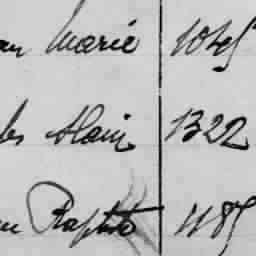 an Marie 1045
les Alain 1322
an Baptiste 1185